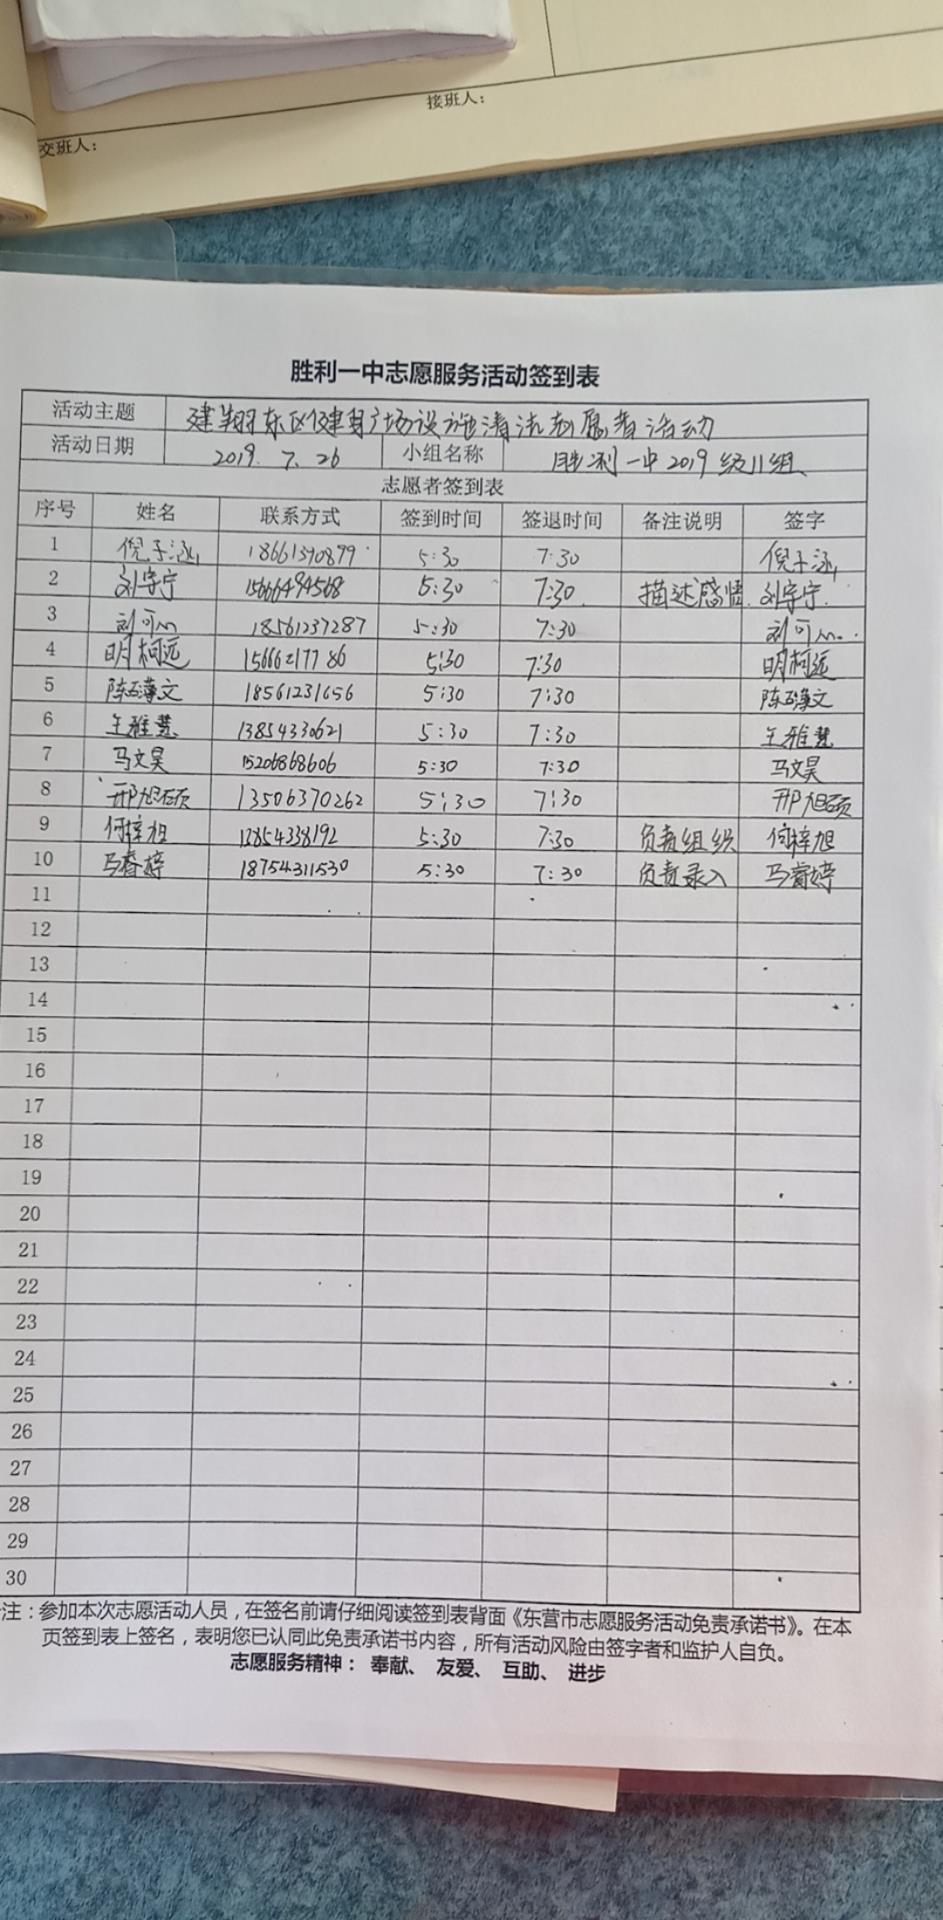 接班人：
交班人：
胜利一中志愿服务活动签到表
活动主题 建翔东区健身广场设施清洁志愿者活动
活动日期 2019.7.26 小组名称 胜利一中2019级11组
志愿者签到表
序号 姓名 联系方式 签到时间 签退时间 备注说明 签字
1 倪子涵 18661390899 5:30 7:30 倪子涵
2 刘宇宁 15666484568 5:30 7:30 描述感悟 刘宇宁
3 刘可心 18561237287 5:30 7:30 刘可心
4 明柯远 15666217786 5:30 7:30 明柯远
5 18561231656 5:30 7:30
6 王雅慧 13854330621 5:30 7:30 王雅慧
7 马文昊 15206868606 5:30 7:30 马文昊
8 邢旭硕 13506370262 5:30 7:30 邢旭硕
9 何梓旭 13854338192 5:30 7:30 负责组织 何梓旭
10 马睿婷 18754311530 5:30 7:30 负责录入 马睿婷
11
12
13
14
15
16
17
18
19
20
21
22
23
24
25
26
27
28
29
30
注：参加本次志愿活动人员，在签名前请仔细阅读签到表背面《东营市志愿服务活动免责承诺书》。在本
页签到表上签名，表明您已认同此免责承诺书内容，所有活动风险由签字者和监护人自负。
志愿服务精神：奉献、友爱、互助、进步